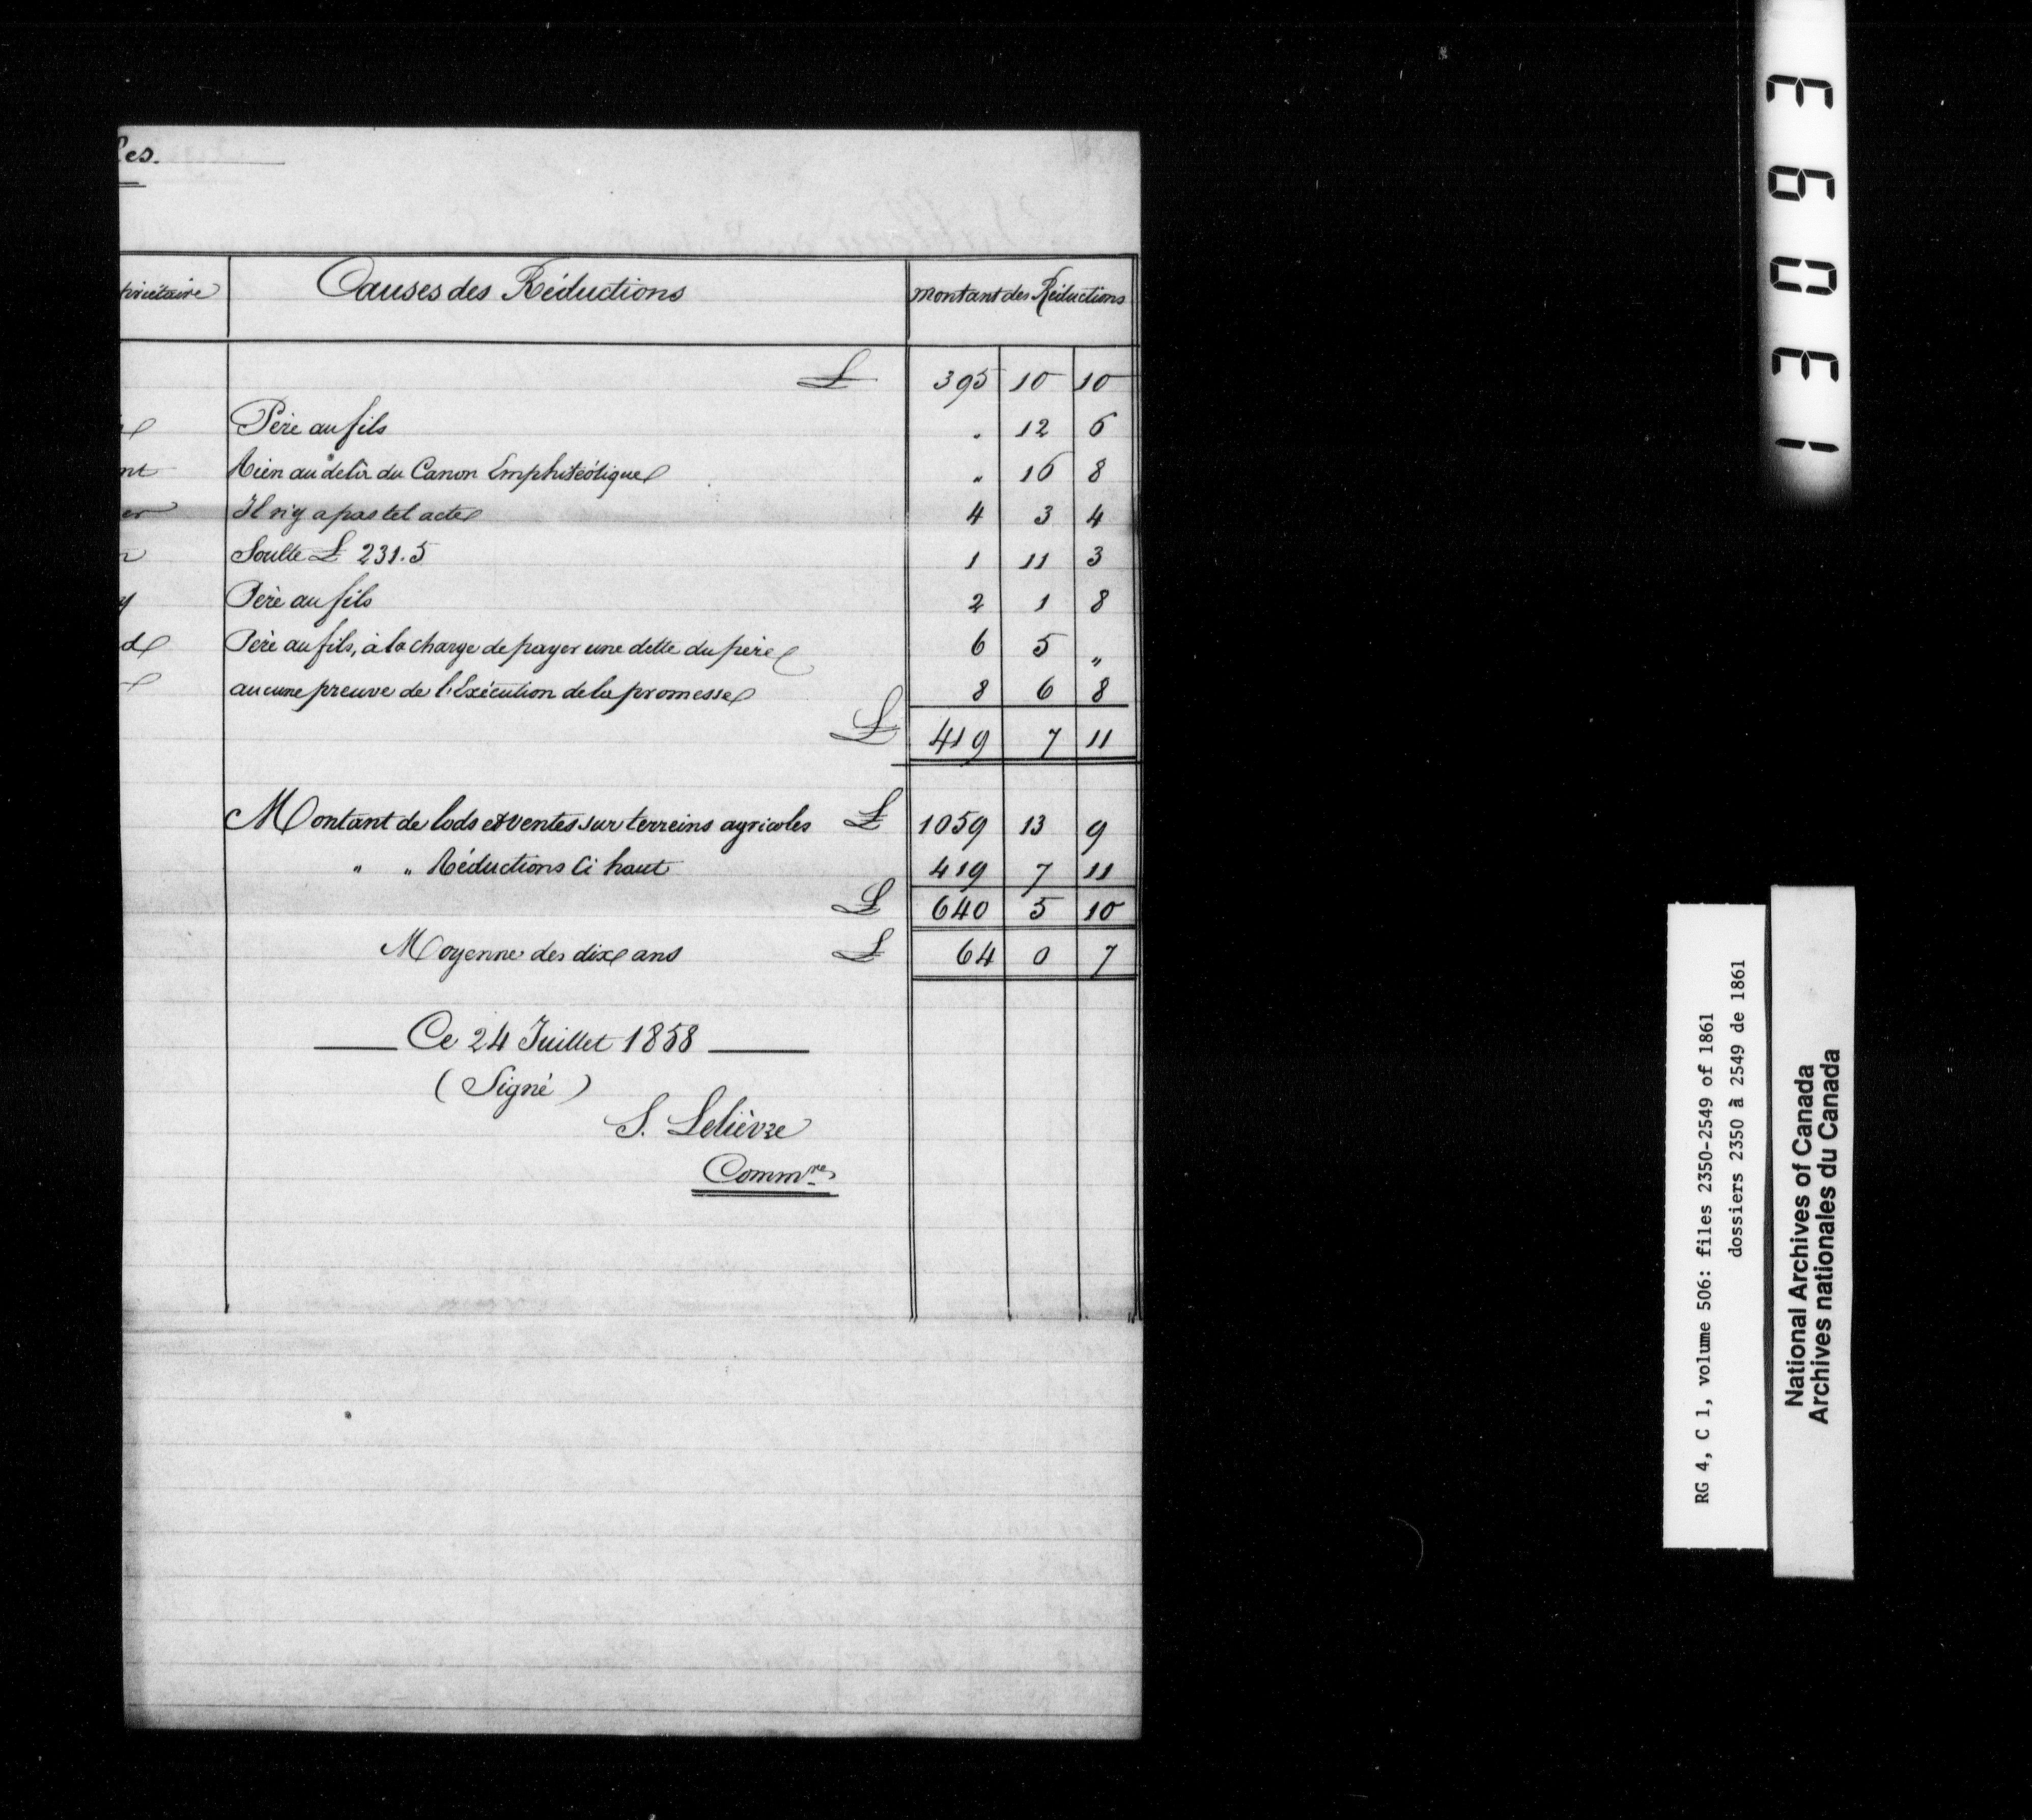 les.
priétaire Causes des Réductions Montant des Réductions
£ 395 10 10
Père au fils . 12 6
nt Rien au delà du Canon Emphitéotique " 16 8
er Il n'y a pas tel acte 4 3 4
n Soulte £ 231.5 1 11 3
y Père au fils 2 1 8
d Père au fils, à la charge de payer une dette du père 6 5 "
aucune preuve de l'Exécution de la promesse 8 6 8
£ 419 7 11
Montant de lods et ventes sur terreins agricoles £ 1059 13 9
" " Réductions Ci haut 419 7 11
£ 640 5 10
Moyenne des dix ans £ 64 0 7
Ce 24 Juillet 1858
(Signé)
S. Lelièvre
Commre
13093
RG 4, C 1, volume 506: files 2350-2549 of 1861
dossiers 2350 à 2549 de 1861
National Archives of Canada
Archives nationales du Canada